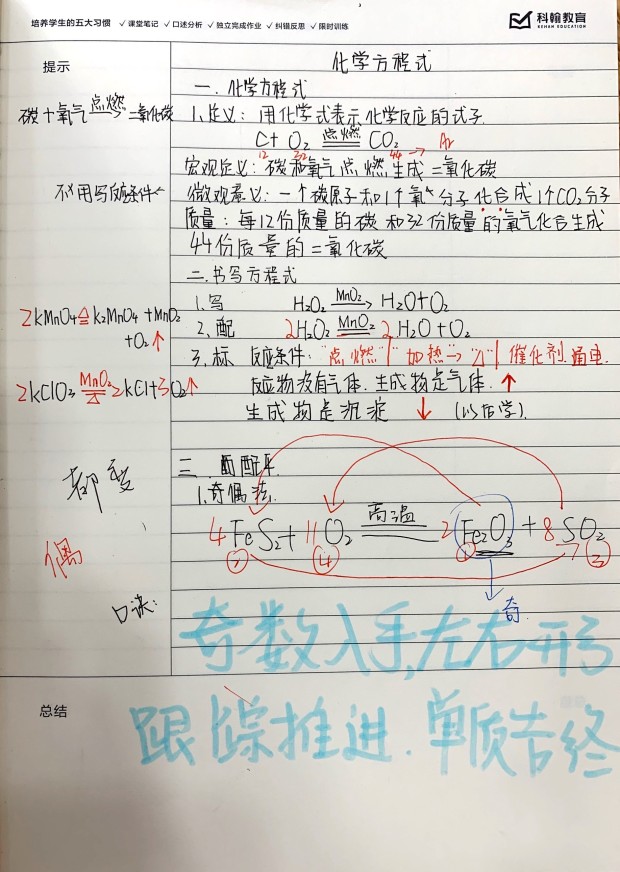 培养学生的五大习惯 ✓课堂笔记 ✓口述分析 ✓独立完成作业 ✓纠错反思 ✓限时训练
科翰教育
KEHAN EDUCATION
提示
化学方程式
一.化学方程式
碳+氧气 点燃→ 二氧化碳
1.定义:用化学式表示化学反应的式子.
C+O₂ 点燃 CO₂ → Ar
12 32 44
宏观定义:碳和氧气点燃生成二氧化碳
不用写反应条件
微观意义:一个碳原子和1个氧分子化合成1个CO₂分子
质量:每12份质量的碳和32份质量的氧气化合生成
44份质量的二氧化碳
二.书写方程式
1.写 H₂O₂ MnO₂→ H₂O+O₂
2KMnO₄ △ K₂MnO₄+MnO₂
+O₂↑
2.配 2H₂O₂ MnO₂ 2H₂O+O₂
3.标 反应条件:"点燃" "加热"→"△" 催化剂.通电.
2KClO₃ MnO₂ △ 2KCl+3O₂↑
反应物没有气体.生成物是气体.↑
生成物是沉淀 ↓ (以后学).
三.配平
1.奇偶法.
都变
偶
4FeS₂+11O₂ 高温 2Fe₂O₃+8SO₂
② ④ ① 7 ③
奇.
口诀:
奇数入手,左右形
跟踪推进.单质告终
总结